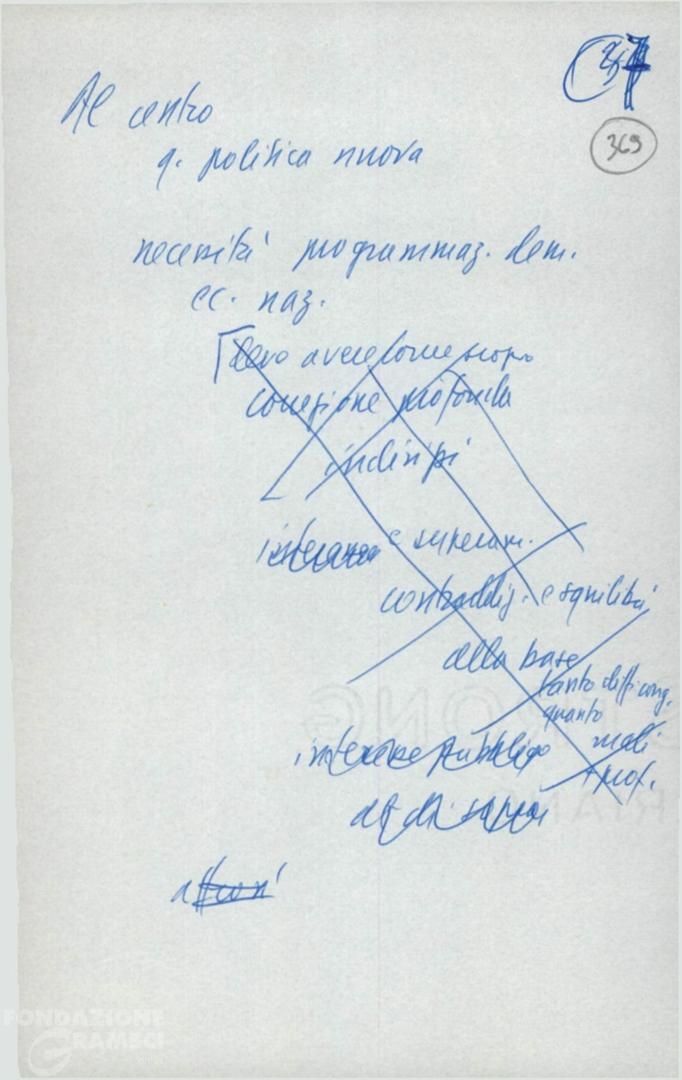 37
369
Al centro
q. politica nuova
necessità programmaz. dem.
ec. naz.
deve avere come scopo
correzione profonda
indirizzi
e superam.
contraddiz. e squilibri
alla base
tanto diff. cong.
quanto
mali
+ prof.
interesse pubblico
al di sopra
FONDAZIONE
GRAMSCI